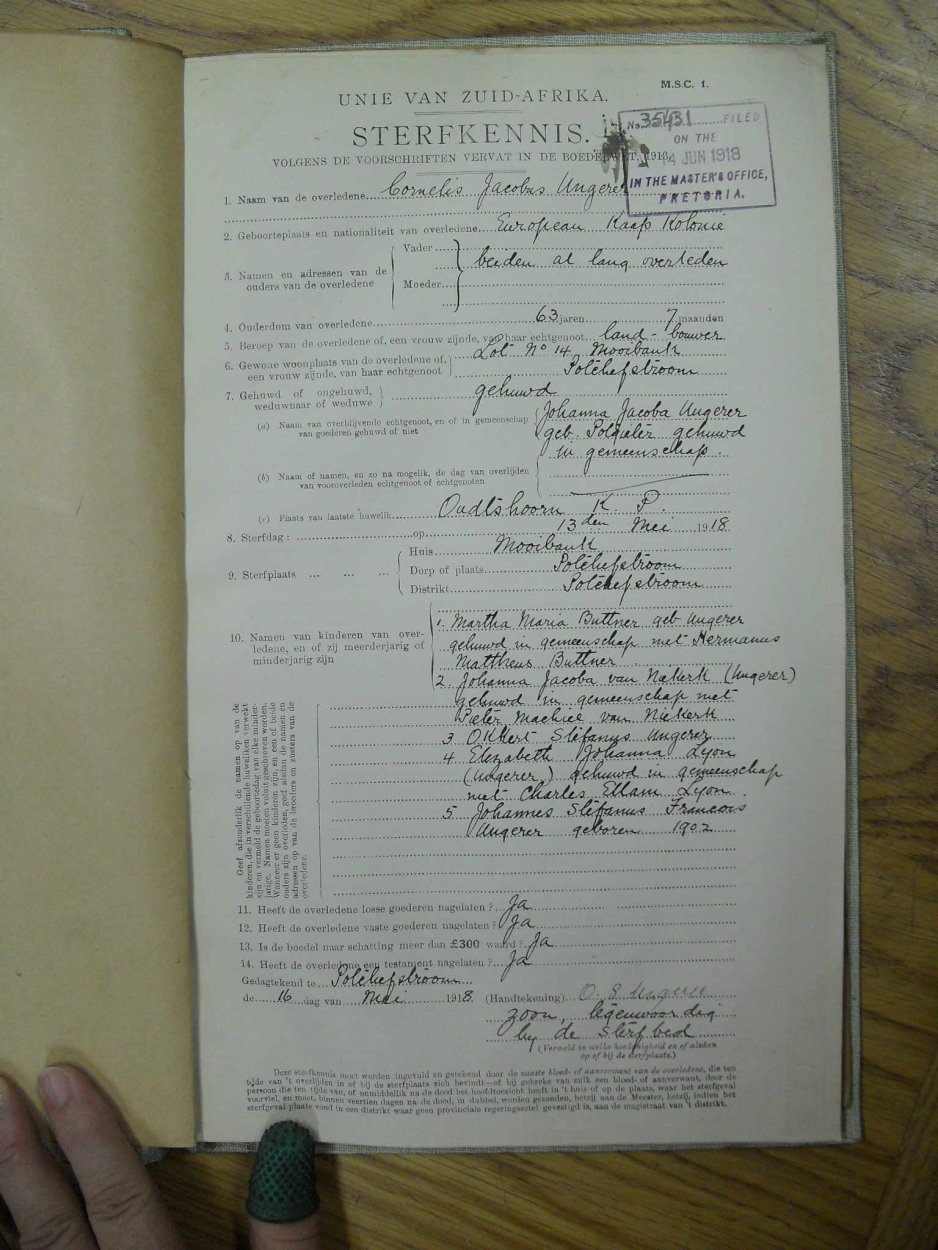 M.S.C. 1.
UNIE VAN ZUID-AFRIKA.
No. 35431 FILED
ON THE
14 JUN 1918
IN THE MASTER'S OFFICE,
PRETORIA.
STERFKENNIS.
VOLGENS DE VOORSCHRIFTEN VERVAT IN DE BOEDELWET, 1913.
1. Naam van de overledene Cornelis Jacobus Ungerer
2. Geboorteplaats en nationaliteit van overledene European Kaap Kolonie
3. Namen en adressen van de ouders van de overledene
Vader
Moeder
beiden al lang overleden
4. Ouderdom van overledene 63 jaren 7 maanden
5. Beroep van de overledene of, een vrouw zijnde, van haar echtgenoot land-bouwer
6. Gewone woonplaats van de overledene of, Lot No 14 Mooibank
een vrouw zijnde, van haar echtgenoot Potchefstroom
7. Gehuwd of ongehuwd, weduwnaar of weduwe gehuwd
(a) Naam van overblijvende echtgenoot, en of in gemeenschap van goederen gehuwd of niet
Johanna Jacoba Ungerer
geb. Potgieter gehuwd
in gemeenschap.
(b) Naam of namen, en zo na mogelik, de dag van overlijden
van vooroverleden echtgenoot of echtgenoten
(c) Plaats van laatste huwelik Oudtshoorn K. P.
8. Sterfdag : op 13den Mei 1918
9. Sterfplaats ... ... ...
Huis Mooibank
Dorp of plaats Potchefstroom
Distrikt Potchefstroom
10. Namen van kinderen van over-
ledene, en of zij meerderjarig of
minderjarig zijn
1. Martha Maria Buttner geb Ungerer
gehuwd in gemeenschap met Hermanus
Mattheus Buttner
2. Johanna Jacoba van Niekerk (Ungerer)
gehuwd in gemeenschap met
Pieter Machiel van Niekerk
3 Okkert Stefanus Ungerer
4 Elizabeth Johanna Lyon
(Ungerer) gehuwd in gemeenschap
met Charles Ellam Lyon.
5 Johannes Stefanus Francois
Ungerer geboren 1902
Geef afzonderlik de namen op van de
kinderen, die in verschillende huweliken verwekt
zijn en vermeld de geboortedag van elke minder-
jarige. Namen moeten voluit geschreven worden.
Wanneer er geen kinderen zijn, en een of beide
ouders zijn overleden, geef alsdan de namen en
adressen op van de broeders en zusters van de
overledene.
11. Heeft de overledene losse goederen nagelaten ? Ja
12. Heeft de overledene vaste goederen nagelaten ? Ja
13. Is de boedel naar schatting meer dan £300 waard ? Ja
14. Heeft de overledene een testament nagelaten ? Ja
Gedagtekend te Potchefstroom
de 16 dag van Mei 1918
(Handtekening) O. S. Ungerer
zoon, tegenwoordig
by de sterf bed
(Vermeld in welke hoedanigheid en of alsdan
op of bij de sterfplaats.)
Deze sterfkennis moet worden ingevuld en getekend door de naaste bloed- of aanverwant van de overledene, die ten
tijde van 't overlijden in of bij de sterfplaats zich bevindt—of bij gebreke van zulk een bloed- of aanverwant, door de
persoon die ten tijde van, of onmiddellik na de dood het hoofdtoezicht heeft in 't huis of op de plaats, waar het sterfgeval
voorviel, en moet, binnen veertien dagen na de dood, in dubbel, worden gezonden, hetzij aan de Meester, hetzij, indien het
sterfgeval plaats vond in een distrikt waar geen provinciale regeringszetel gevestigd is, aan de magistraat van 't distrikt.